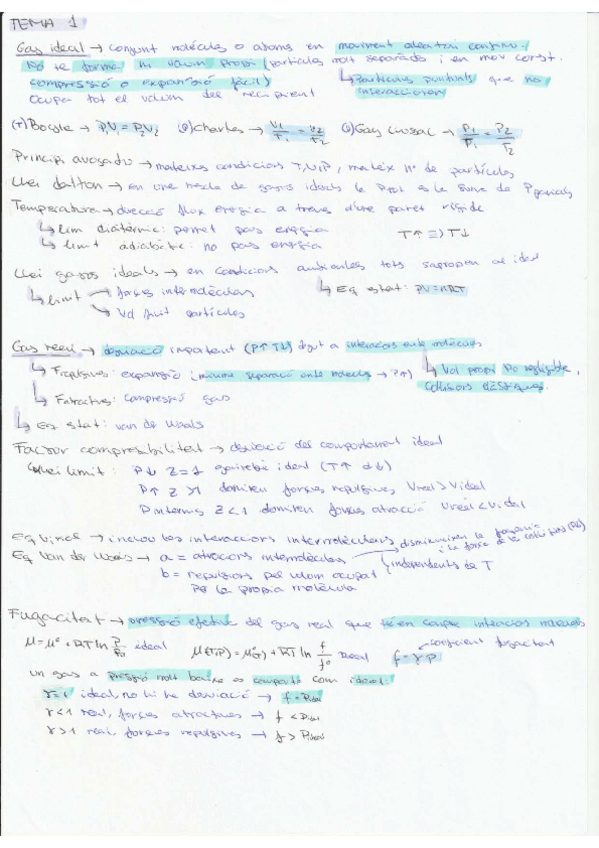 TEMA 1
Gas ideal → conjunt molècules o àtoms en moviment aleatori continu.
No té forma ni volum propi (partícules molt separades i en mov const.
compressió o expansió fàcil) ↳ Partícules puntuals que no
ocupa tot el volum del recipient interaccionen
(T) Boyle → P₁V₁ = P₂V₂ (P) Charles → V₁/T₁ = V₂/T₂ (V) Gay Lussac → P₁/T₁ = P₂/T₂
Principi avogadro → mateixes condicions T, V, P, mateix nº de partícules
Llei dalton → en una mescla de gasos ideals la Ptot és la suma de Pparcials
Temperatura → direcció flux energia a través d'una paret rígida
↳ lim diatèrmic: permet pas energia T↑ ⇒ T↓
↳ limit adiabàtic: no pas energia
Llei gasos ideals → en condicions ambientals tots s'apropen al ideal
↳ limit → forces intermoleculars ↳ Eq estat: PV = nRT
↘ Vol partícules
Gas real → desviació important (P↑ T↓) degut a interaccions entre molècules
↳ F repulsives: expansió (menor separació entre molècules → P↑) ↳ Vol propi no negligible,
↳ F atractives: compressió gas col·lisions elàstiques.
↳ Eq estat: van der Waals
Factor compressibilitat → desviació del comportament ideal
Llei limit: P↓ Z = 1 gairebé ideal (T↑ d↓)
P↑ Z > 1 dominen forces repulsives, Vreal > Videal
P intermitges Z < 1 dominen forces atracció Vreal < Videal
Eq Virial → inclou les interaccions intermoleculars
Eq Van der Waals → a = atraccions intermoleculars → disminueixen la freqüència i la força de les col·lisions
b = repulsions pel volum ocupat independents de T
per la pròpia molècula
Fugacitat → pressió efectiva del gas real que té en compte interaccions
μ = μ° + RT ln P/P° ideal μ(T,P) = μ°(T) + RT ln f/f° real f = γ P → coeficient fugacitat
un gas a pressió molt baixa es comporta com ideal:
γ = 1 ideal, no hi ha desviació → f = Pideal
γ < 1 real, forces atractives → f < Pideal
γ > 1 real, forces repulsives → f > Pideal